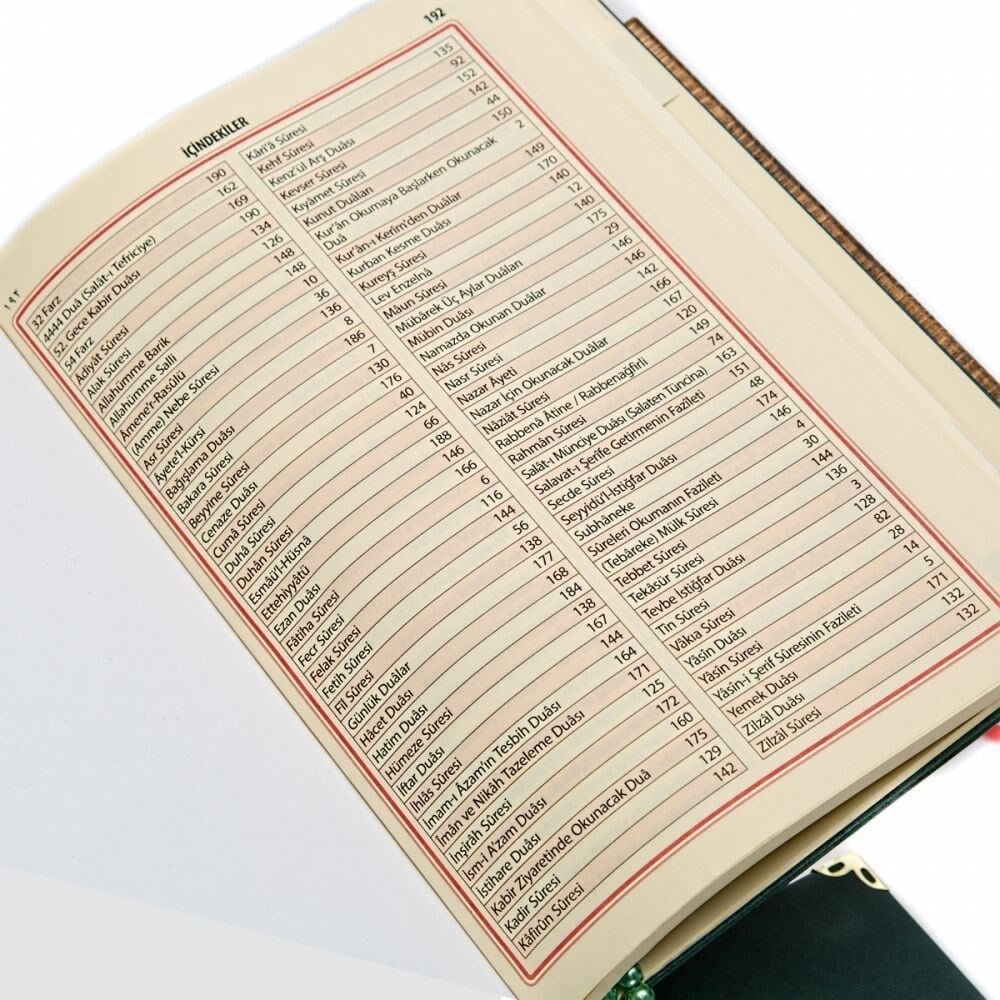 192
İÇİNDEKİLER
١٩٢
32 Farz 190
4444 Duâ (Salât-ı Tefriciye) 162
52. Gece Kabir Duâsı 169
54 Farz 190
Âdiyât Sûresi 134
Alak Sûresi 126
Allahümme Barik 148
Allahümme Salli 148
Âmene'r-Rasûlü 10
(Amme) Nebe Sûresi 36
Asr Sûresi 136
Âyete'l-Kürsi 8
Bağışlama Duâsı 186
Bakara Sûresi 7
Beyyine Sûresi 130
Cenaze Duâsı 176
Cumâ Sûresi 40
Duhâ Sûresi 124
Duhân Sûresi 66
Esmâü'l-Hüsnâ 188
Ettehiyyâtü 146
Ezan Duâsı 166
Fâtiha Sûresi 6
Fecr Sûresi 116
Felak Sûresi 144
Fetih Sûresi 56
Fil Sûresi 138
Günlük Duâlar 177
Hâcet Duâsı 168
Hatim Duâsı 184
Hümeze Sûresi 138
İftar Duâsı 167
İhlâs Sûresi 144
İmam-ı Âzam'ın Tesbih Duâsı 164
İmân ve Nikâh Tazeleme Duâsı 171
İnşirâh Sûresi 125
İsm-i A'zam Duâsı 172
İstihare Duâsı 160
Kabir Ziyaretinde Okunacak Duâ 175
Kadir Sûresi 129
Kâfirûn Sûresi 142
Kâri'â Sûresi 135
Kehf Sûresi 92
Kenz'ül Arş Duâsı 152
Kevser Sûresi 142
Kıyâmet Sûresi 44
Kunut Duâları 150
Kur'ân Okumaya Başlarken Okunacak 2
Duâ
Kur'ân-ı Kerîm'den Duâlar 149
Kurban Kesme Duâsı 170
Kureyş Sûresi 140
Lev Enzelnâ 12
Mâun Sûresi 140
Mübârek Üç Aylar Duâları 175
Mübin Duâsı 29
Namazda Okunan Duâlar 146
Nâs Sûresi 146
Nasr Sûresi 142
Nazar Âyeti 166
Nazar İçin Okunacak Duâlar 167
Nâziât Sûresi 120
Rabbenâ Âtine / Rabbenağfirli 149
Rahmân Sûresi 74
Salât-ı Münciye Duâsı (Salaten Tüncina) 163
Salavat-ı Şerife Getirmenin Fazîleti 151
Secde Sûresi 48
Seyyidü'l-İstiğfar Duâsı 174
Subhâneke 146
Sûreleri Okumanın Fazîleti 4
(Tebâreke) Mülk Sûresi 30
Tebbet Sûresi 144
Tekâsür Sûresi 136
Tevbe İstiğfar Duâsı 3
Tin Sûresi 128
Vâkıa Sûresi 82
Yâsin Duâsı 28
Yâsin Sûresi 14
Yâsin-i Şerif Sûresinin Fazileti 5
Yemek Duâsı 171
Zilzâl Duâsı 132
Zilzâl Sûresi 132